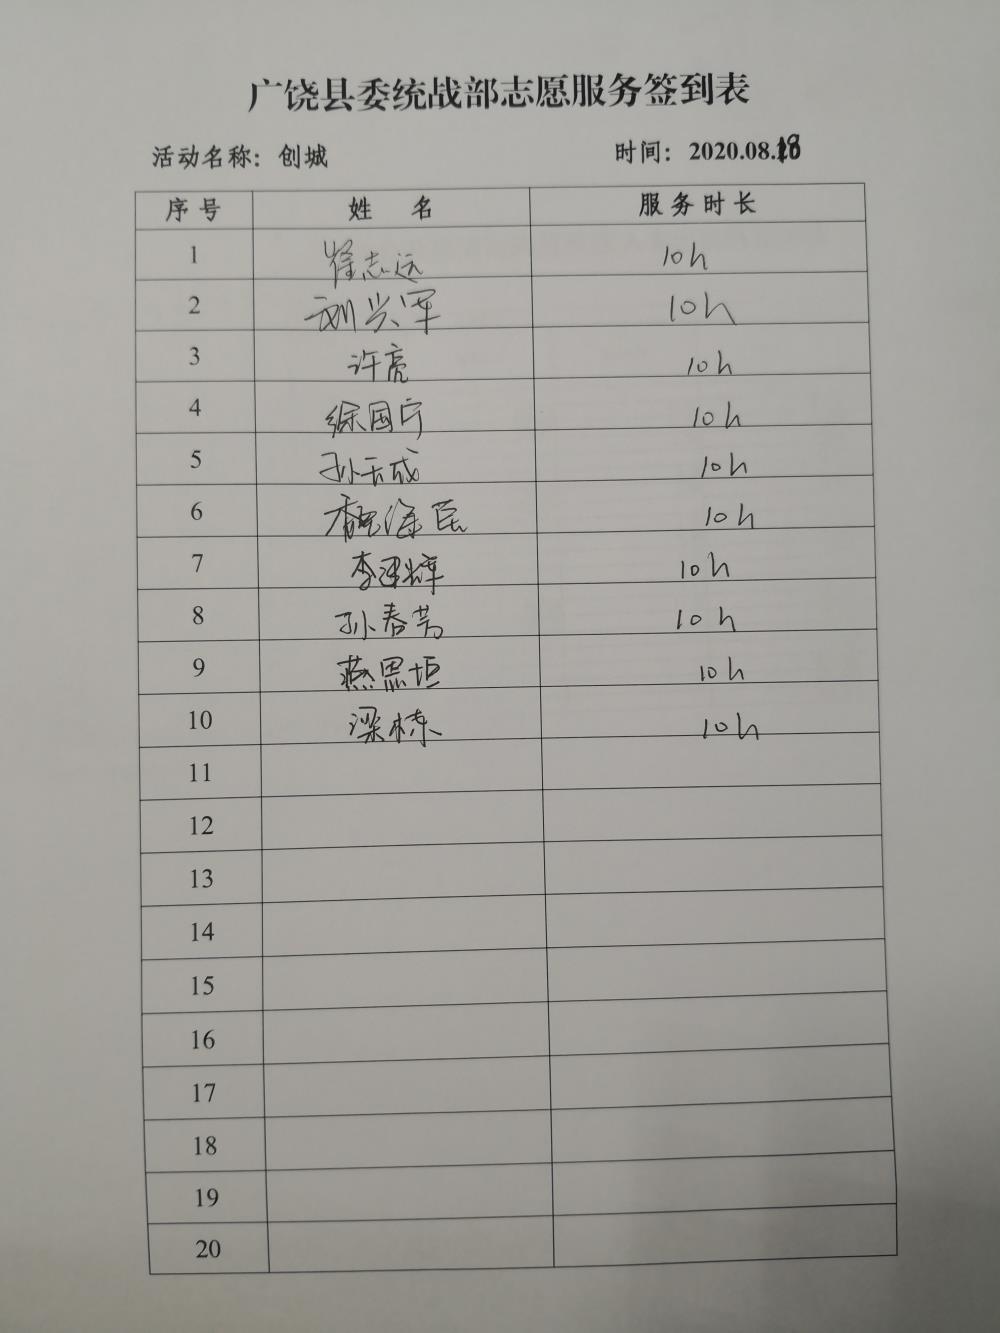 广饶县委统战部志愿服务签到表
活动名称：创城 时间：2020.08.18
序号 姓 名 服务时长
1 徐志远 10h
2 刘兴军 10h
3 许亮 10h
4 徐国宁 10h
5 孙天成 10h
6 魏海民 10h
7 李建辉 10h
8 孙春芳 10h
9 燕思垣 10h
10 梁栋 10h
11
12
13
14
15
16
17
18
19
20